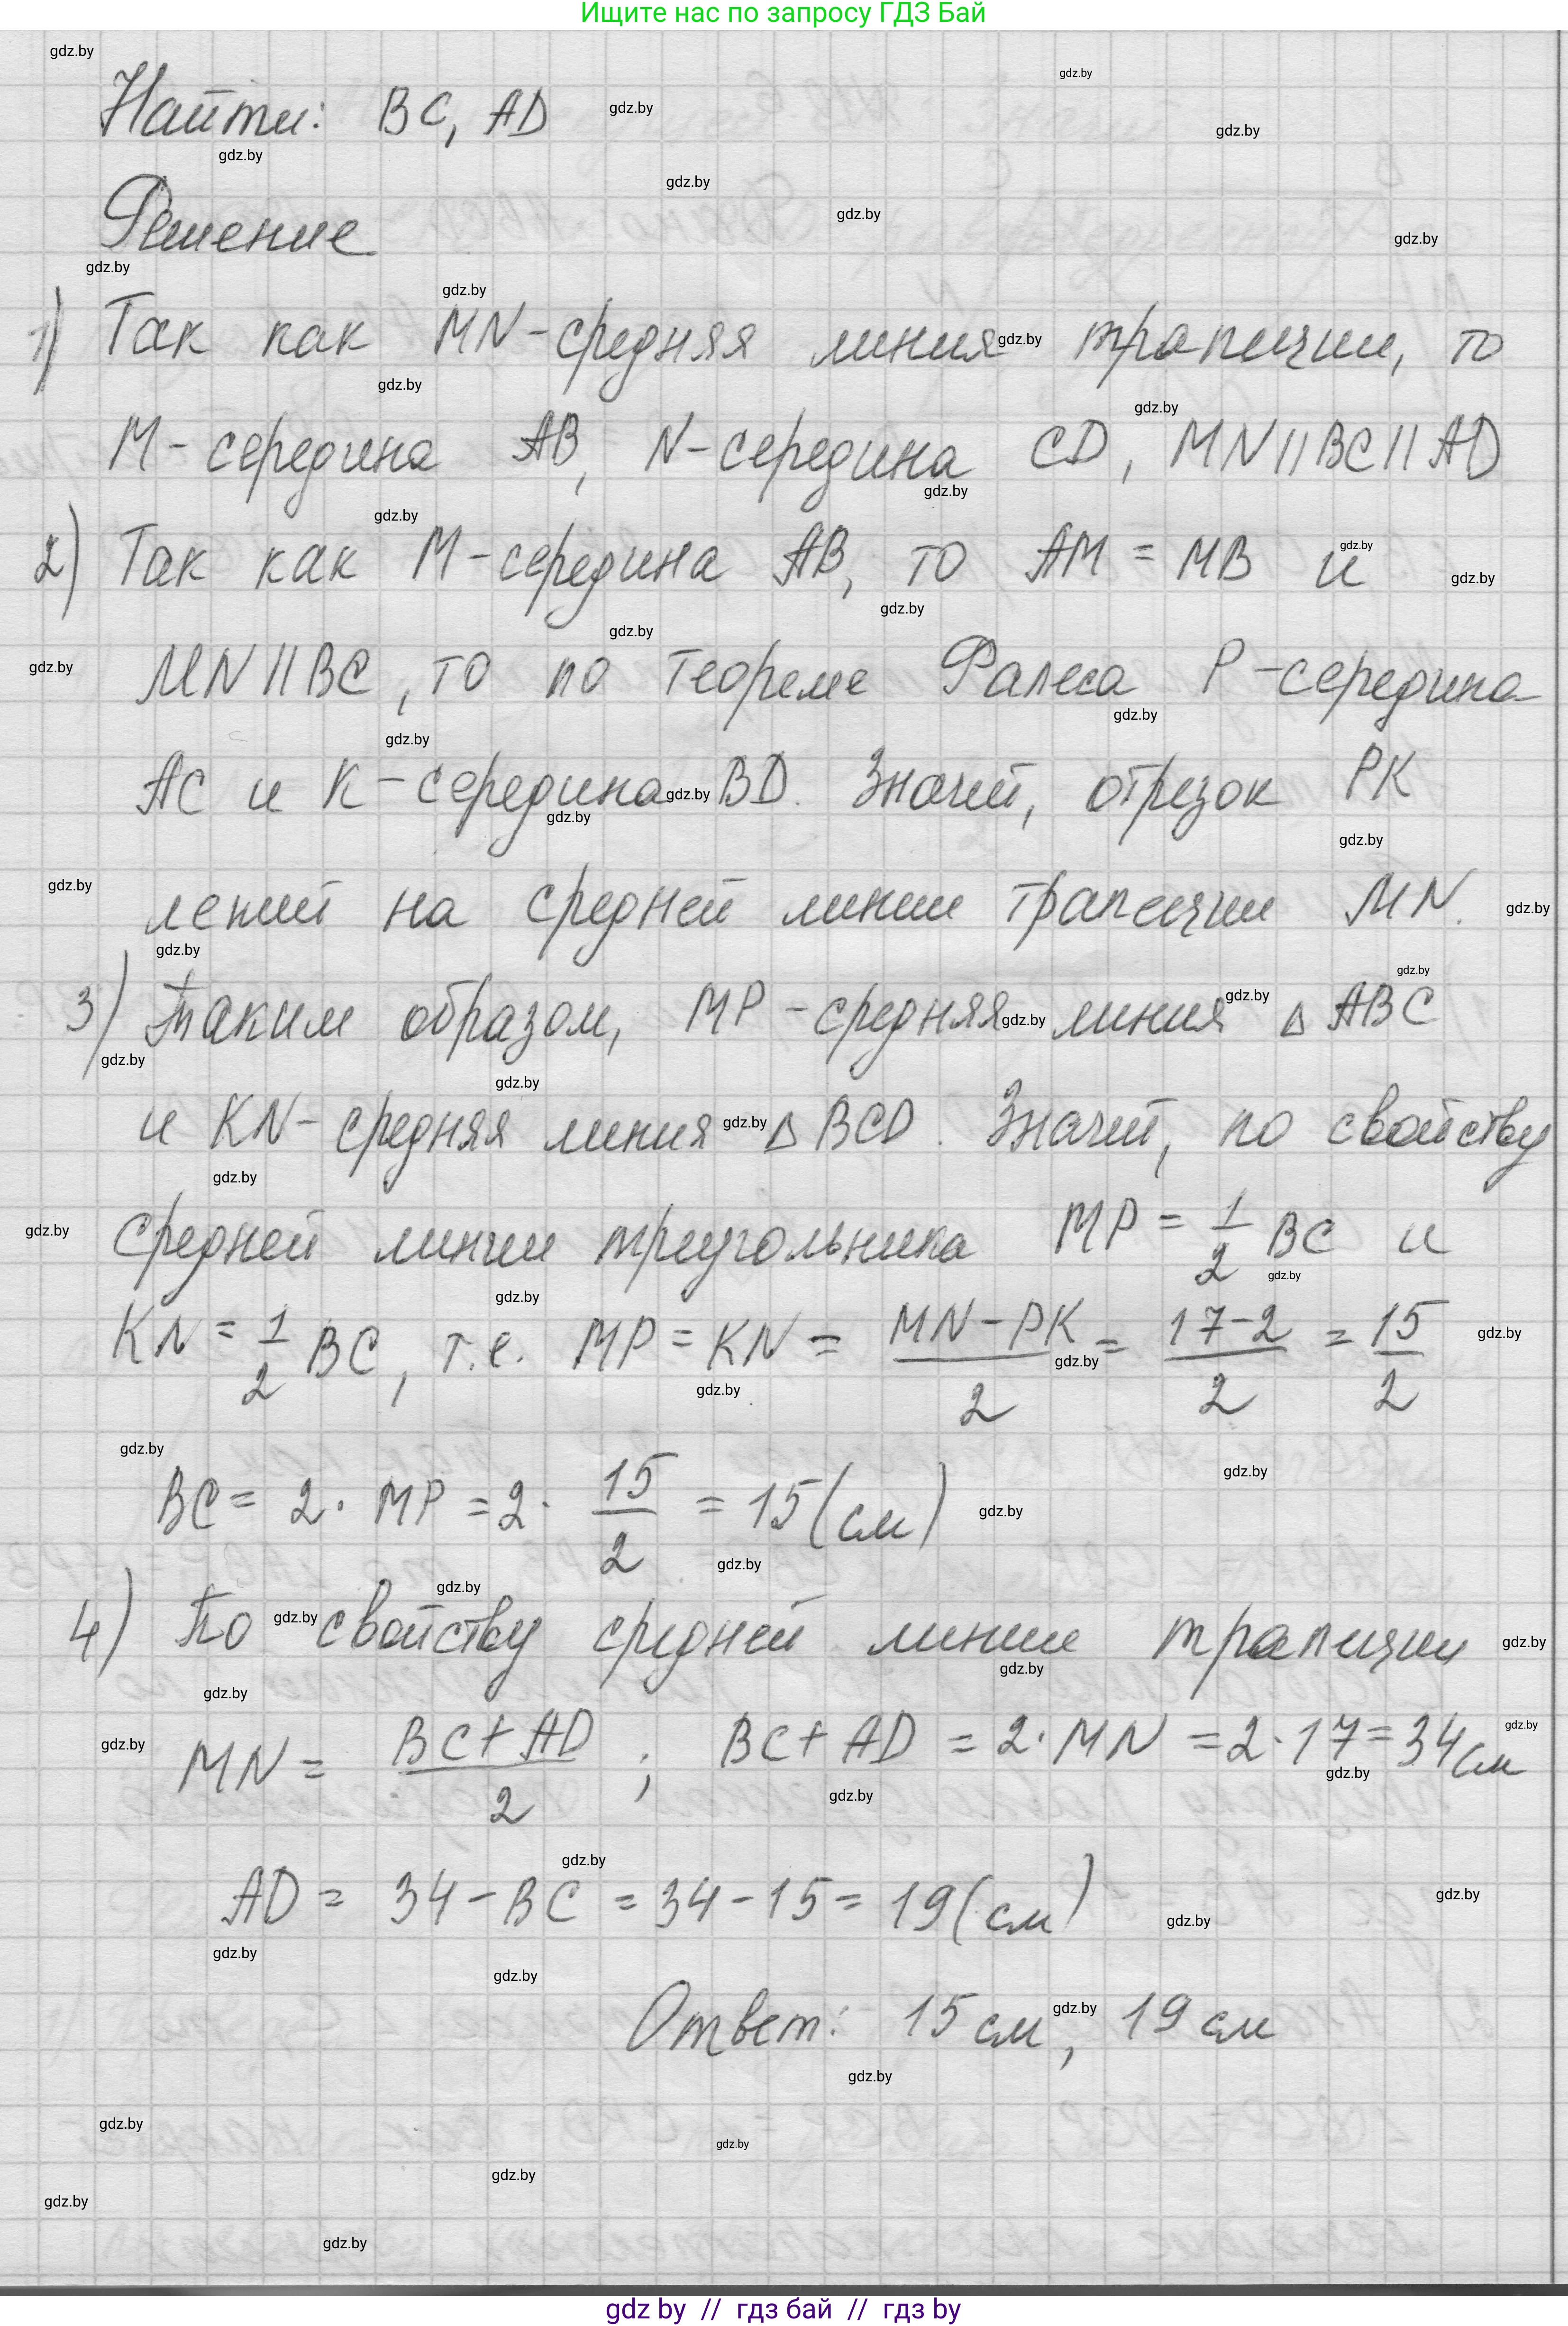 Ищите нас по запросу ГДЗ Бай
Найти: BC, AD
Решение
1) Так как MN-средняя линия трапеции, то
M-середина AB, N-середина CD, MN||BC||AD
2) Так как M-середина AB, то AM = MB и
MN||BC, то по теореме Фалеса P-середина
AC и K-середина BD. Значит, отрезок PK
лежит на средней линии трапеции MN.
3) Таким образом, MP-средняя линия △ABC
и KN-средняя линия △BCD. Значит, по свойству
средней линии треугольника MP = 1/2 BC и
KN = 1/2 BC, т.е. MP = KN = (MN-PK)/2 = (17-2)/2 = 15/2
BC = 2·MP = 2·15/2 = 15(см)
4) По свойству средней линии трапеции
MN = (BC+AD)/2; BC+AD = 2·MN = 2·17 = 34см
AD = 34-BC = 34-15 = 19(см)
Ответ: 15 см, 19 см
gdz by // гдз бай // гдз by